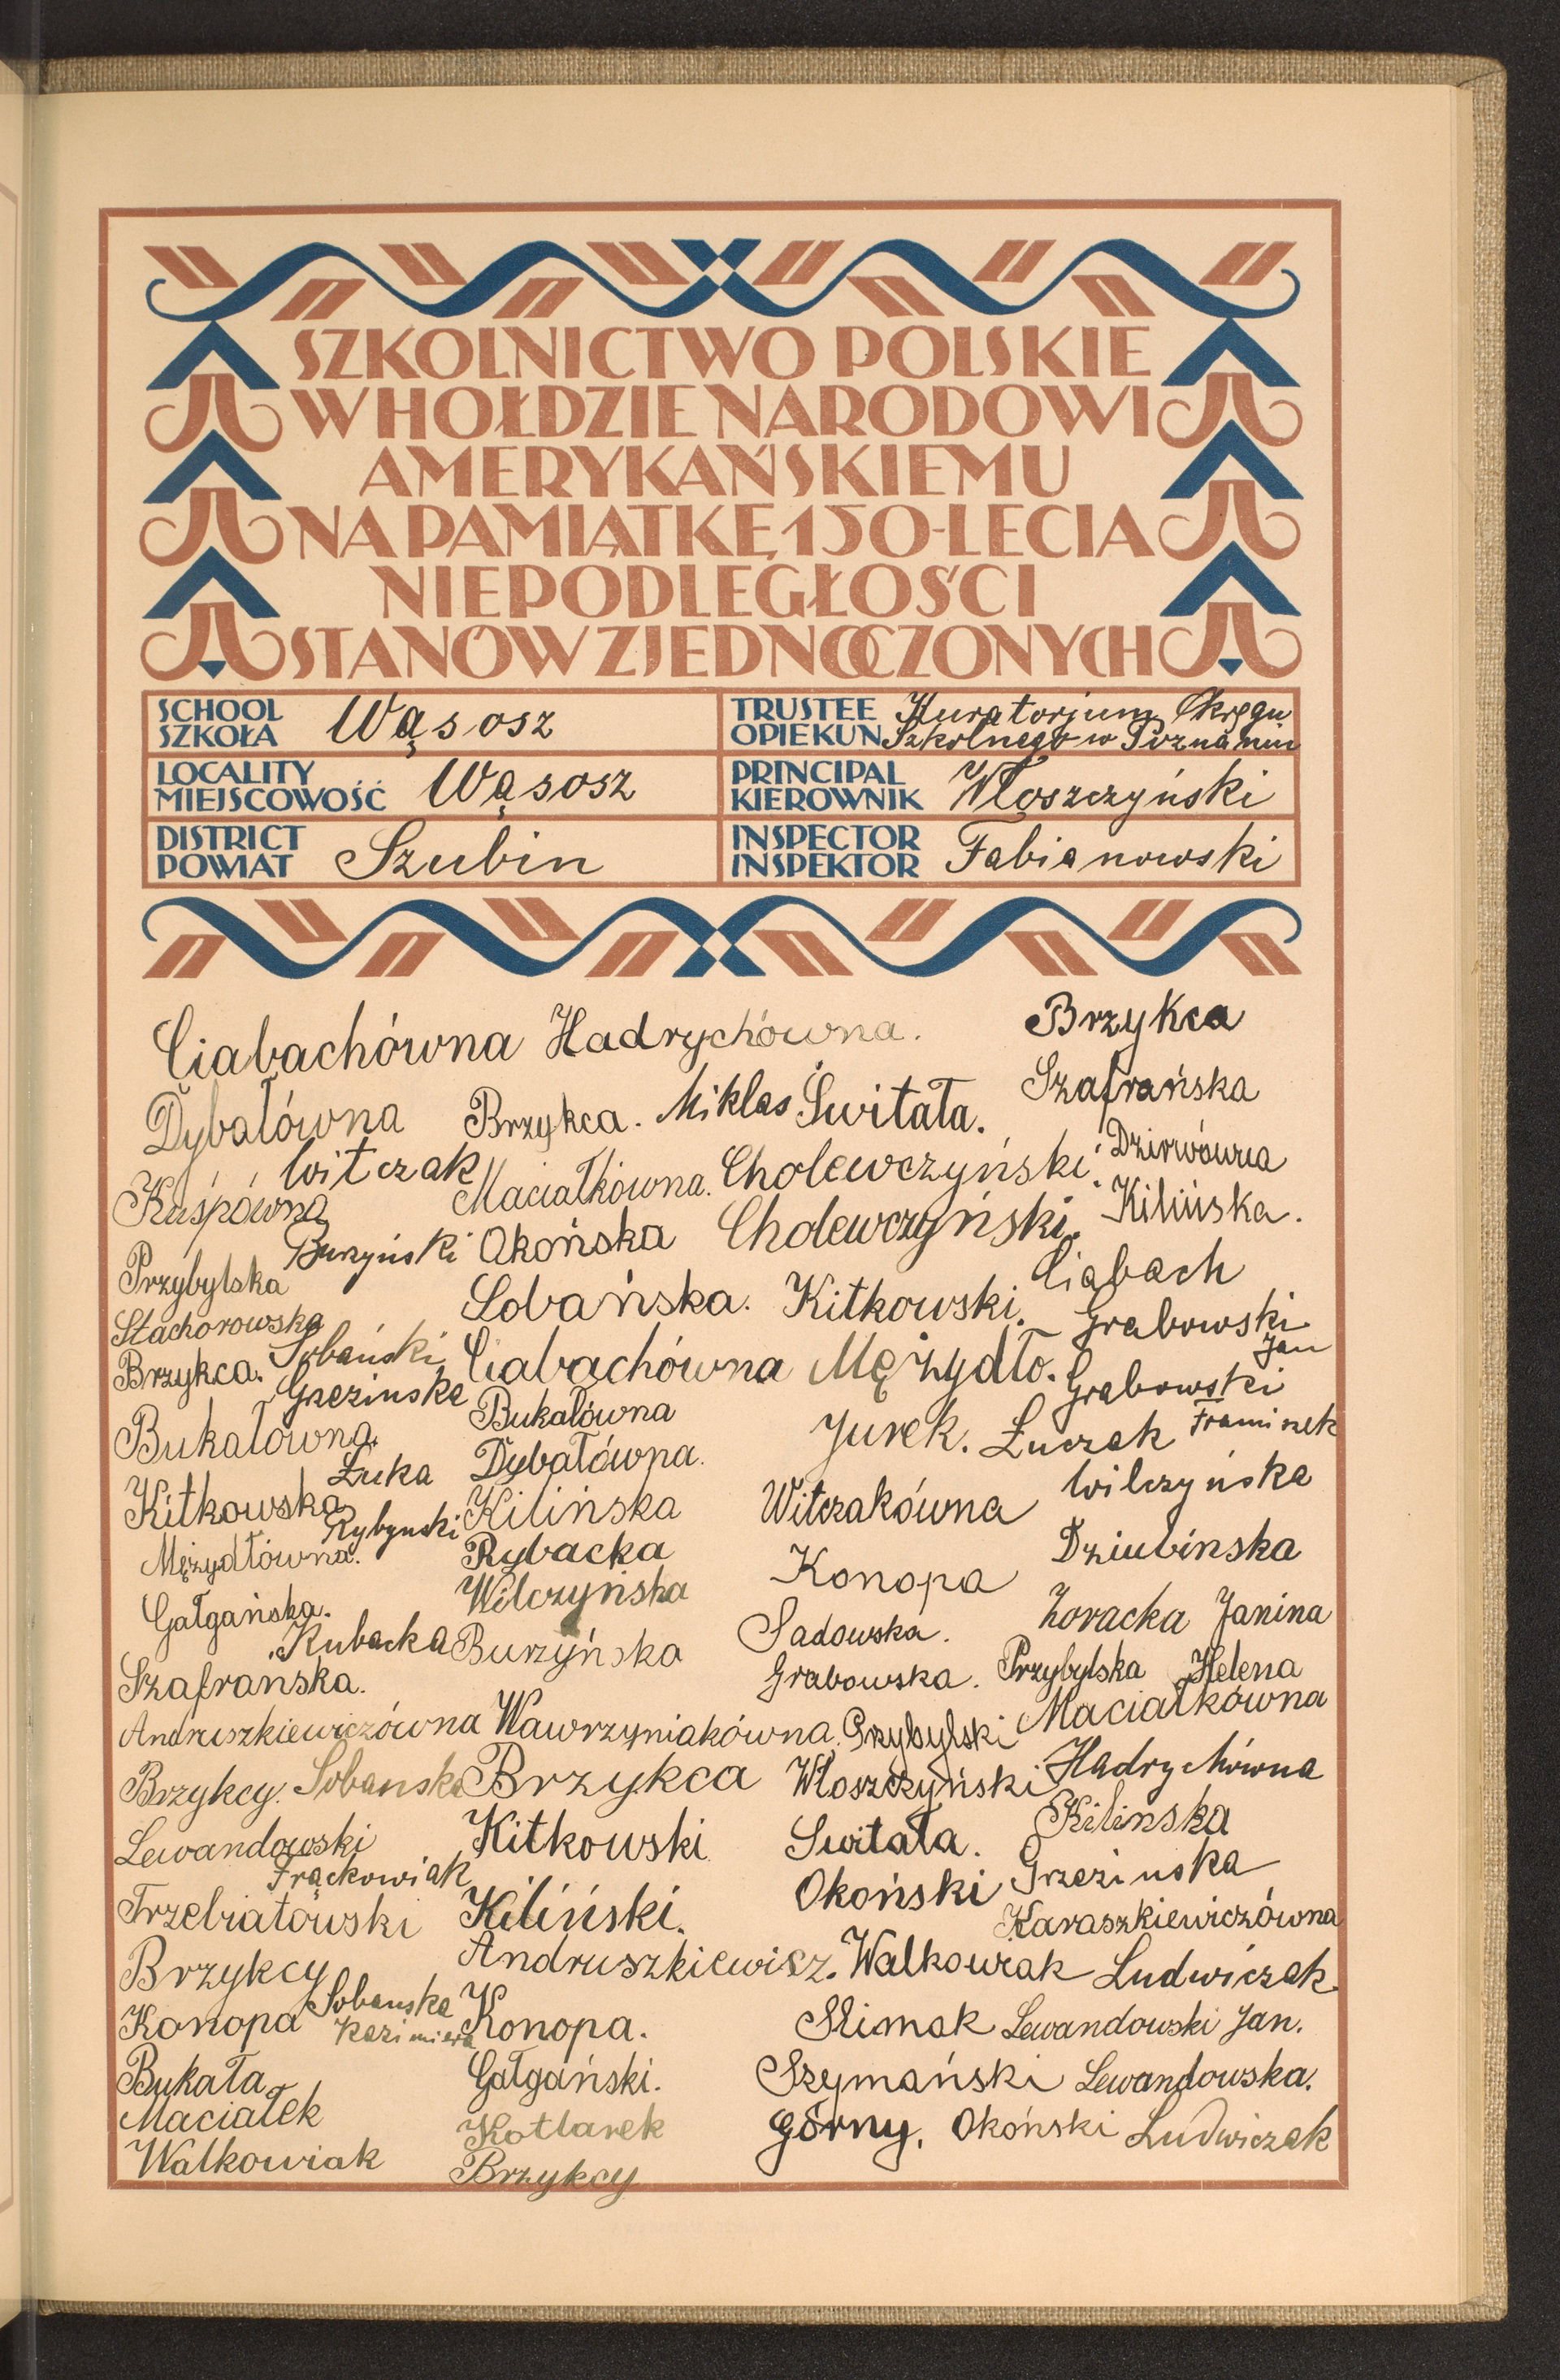 SZKOLNICTWO POLSKIE
W HOŁDZIE NARODOWI
AMERYKAŃSKIEMU
NA PAMIĄTKĘ 150-LECIA
NIEPODLEGŁOŚCI
STANÓW ZJEDNOCZONYCH
SCHOOL
SZKOŁA Wąsosz
TRUSTEE
OPIEKUN Kuratorjum Okręgu
Szkolnego w Poznaniu
LOCALITY
MIEJSCOWOŚĆ Wąsosz
PRINCIPAL
KIEROWNIK Włoszczyński
DISTRICT
POWIAT Szubin
INSPECTOR
INSPEKTOR Fabianowski
Ciabachówna Hadrychówna. Brzykca
Dybałówna Brzykca. Miklas Świtała. Szafrańska
Witczak Maciałkówna. Cholewczyński.
Kuśpówna Okońska Cholewczyński. Kilińska.
Burzyński
Przybylska Łobańska. Kitkowski. Ciabach
Stachorowska Sobański Grabowski
Jan
Brzykca. Ciabachówna Mężydło. Grabowski
Grezinska Bukałówna Jurek. Łuczak
Bukałówna. Dybałówna. Wilczyńska
Łuka
Kitkowska Kilińska Witczakówna
Rybynski
Mężydłówna. Rybacka Konopa Dziubinska
Gałgańska. Wilczyńska Sadowska. Zoracka Janina
Kubacka Burzyńska Grabowska. Przybylska Helena
Szafranska. Maciałkówna
Andruszkiewiczówna Wawrzyniakówna. Przybylski
Brzykcy. Sobanska Brzykca Włoszczyński Hadrychówna
Lewandowski Kitkowski Switała. Kilinska
Frąckowiak Okoński Grezinska
Trzebiatowski Kiliński. Karaszkiewiczówna
Brzykcy Andruszkiewicz. Walkowiak Ludwiczak
Konopa Sobanska Konopa. Slimak Lewandowski Jan.
Kazimiera
Bukała Gałgański. Szymański Lewandowska.
Maciałek Kotlarek Górny. Okoński Ludwiczak
Walkowiak Brzykcy